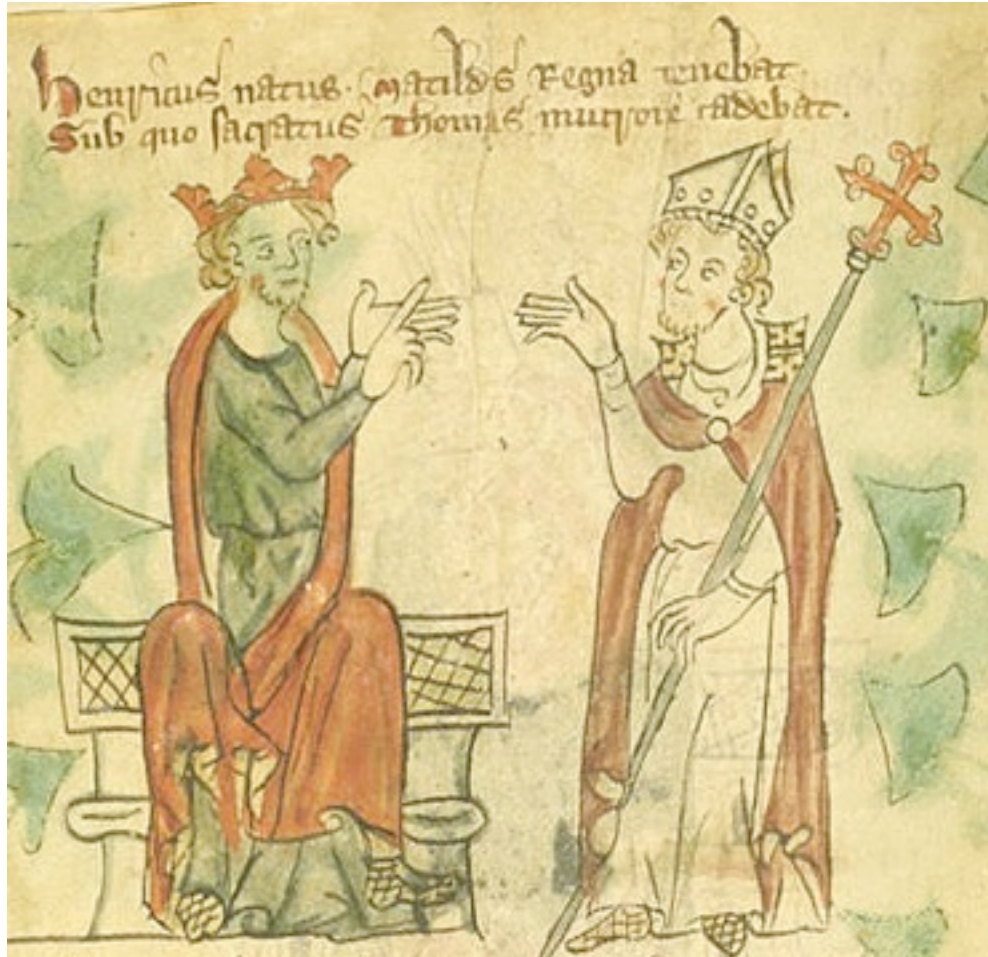 Henricus natus Matildis regna tenebat.
Sub quo sacratus Thomas mucrone cadebat.